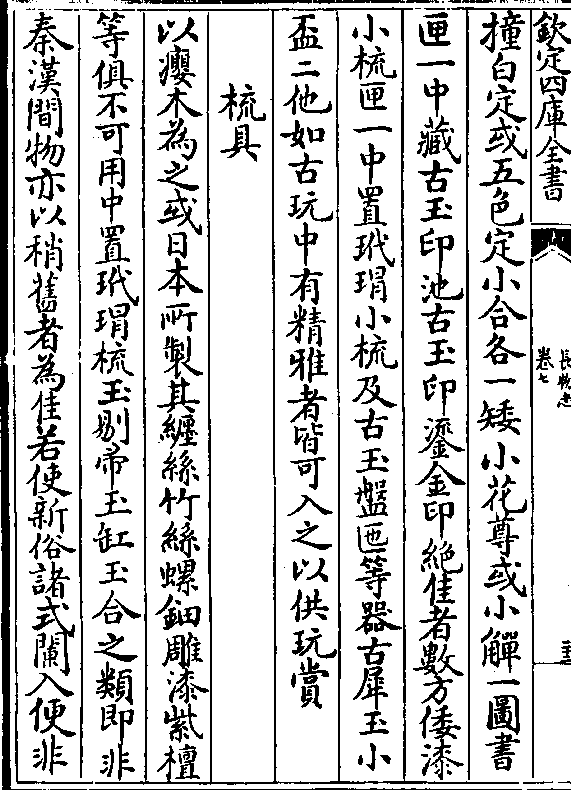 欽定四庫全書
長物志
卷七
撞白定或五色定小合各一矮小花尊或小觶一圖書
匣一中藏古玉印池古玉印鎏金印絶佳者數方倭漆
小梳匣一中置玳瑁小梳及古玉盤匜等器古犀玉小
盃二他如古玩中有精雅者皆可入之以供玩賞
梳具
以癭木為之或日本所製其纏絲竹絲螺鈿雕漆紫檀
等俱不可用中置玳瑁梳玉剔帚玉缸玉合之類即非
秦漢間物亦以稍舊者為佳若使新俗諸式闌入便非